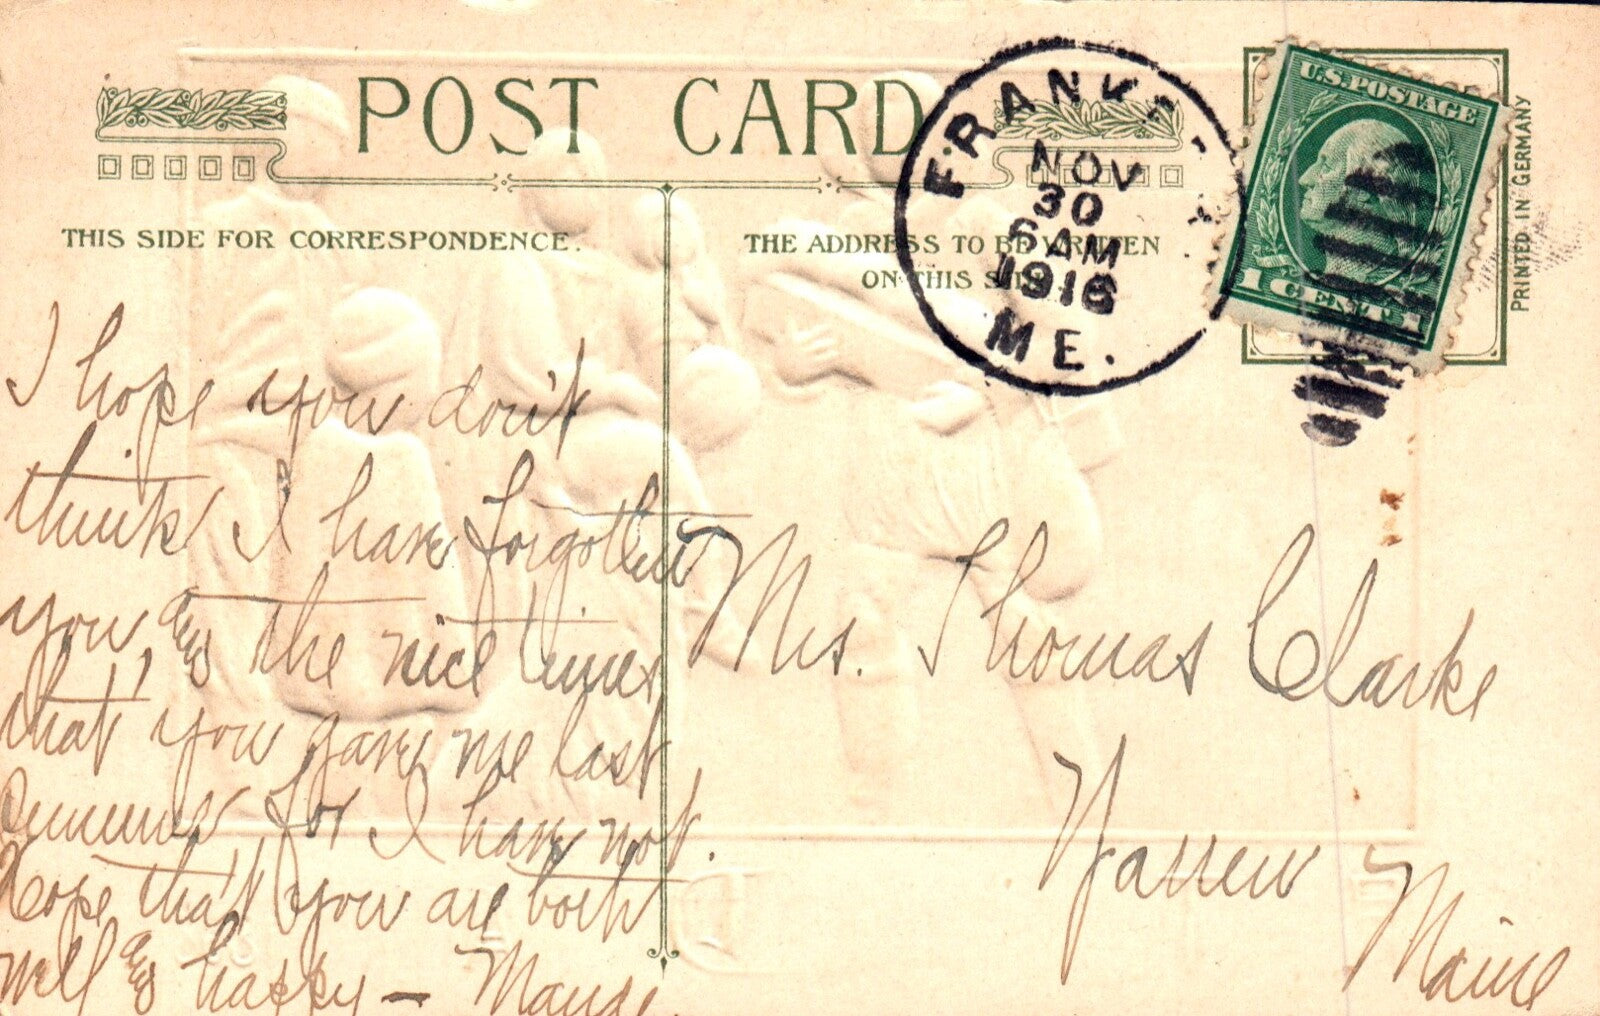 POST CARD
THIS SIDE FOR CORRESPONDENCE.
THE ADDRESS TO BE WRITTEN
ON THIS SIDE
FRANKF
NOV
30
6 AM
1916
ME.
U.S. POSTAGE
1 CENT 1
PRINTED IN GERMANY
I hope you don't
think I have forgotten
you, and the nice times
that you gave me last
summer for I have not.
Hope that you are both
well and happy — Maude.
Mrs. Thomas Clarke
Warren
Maine